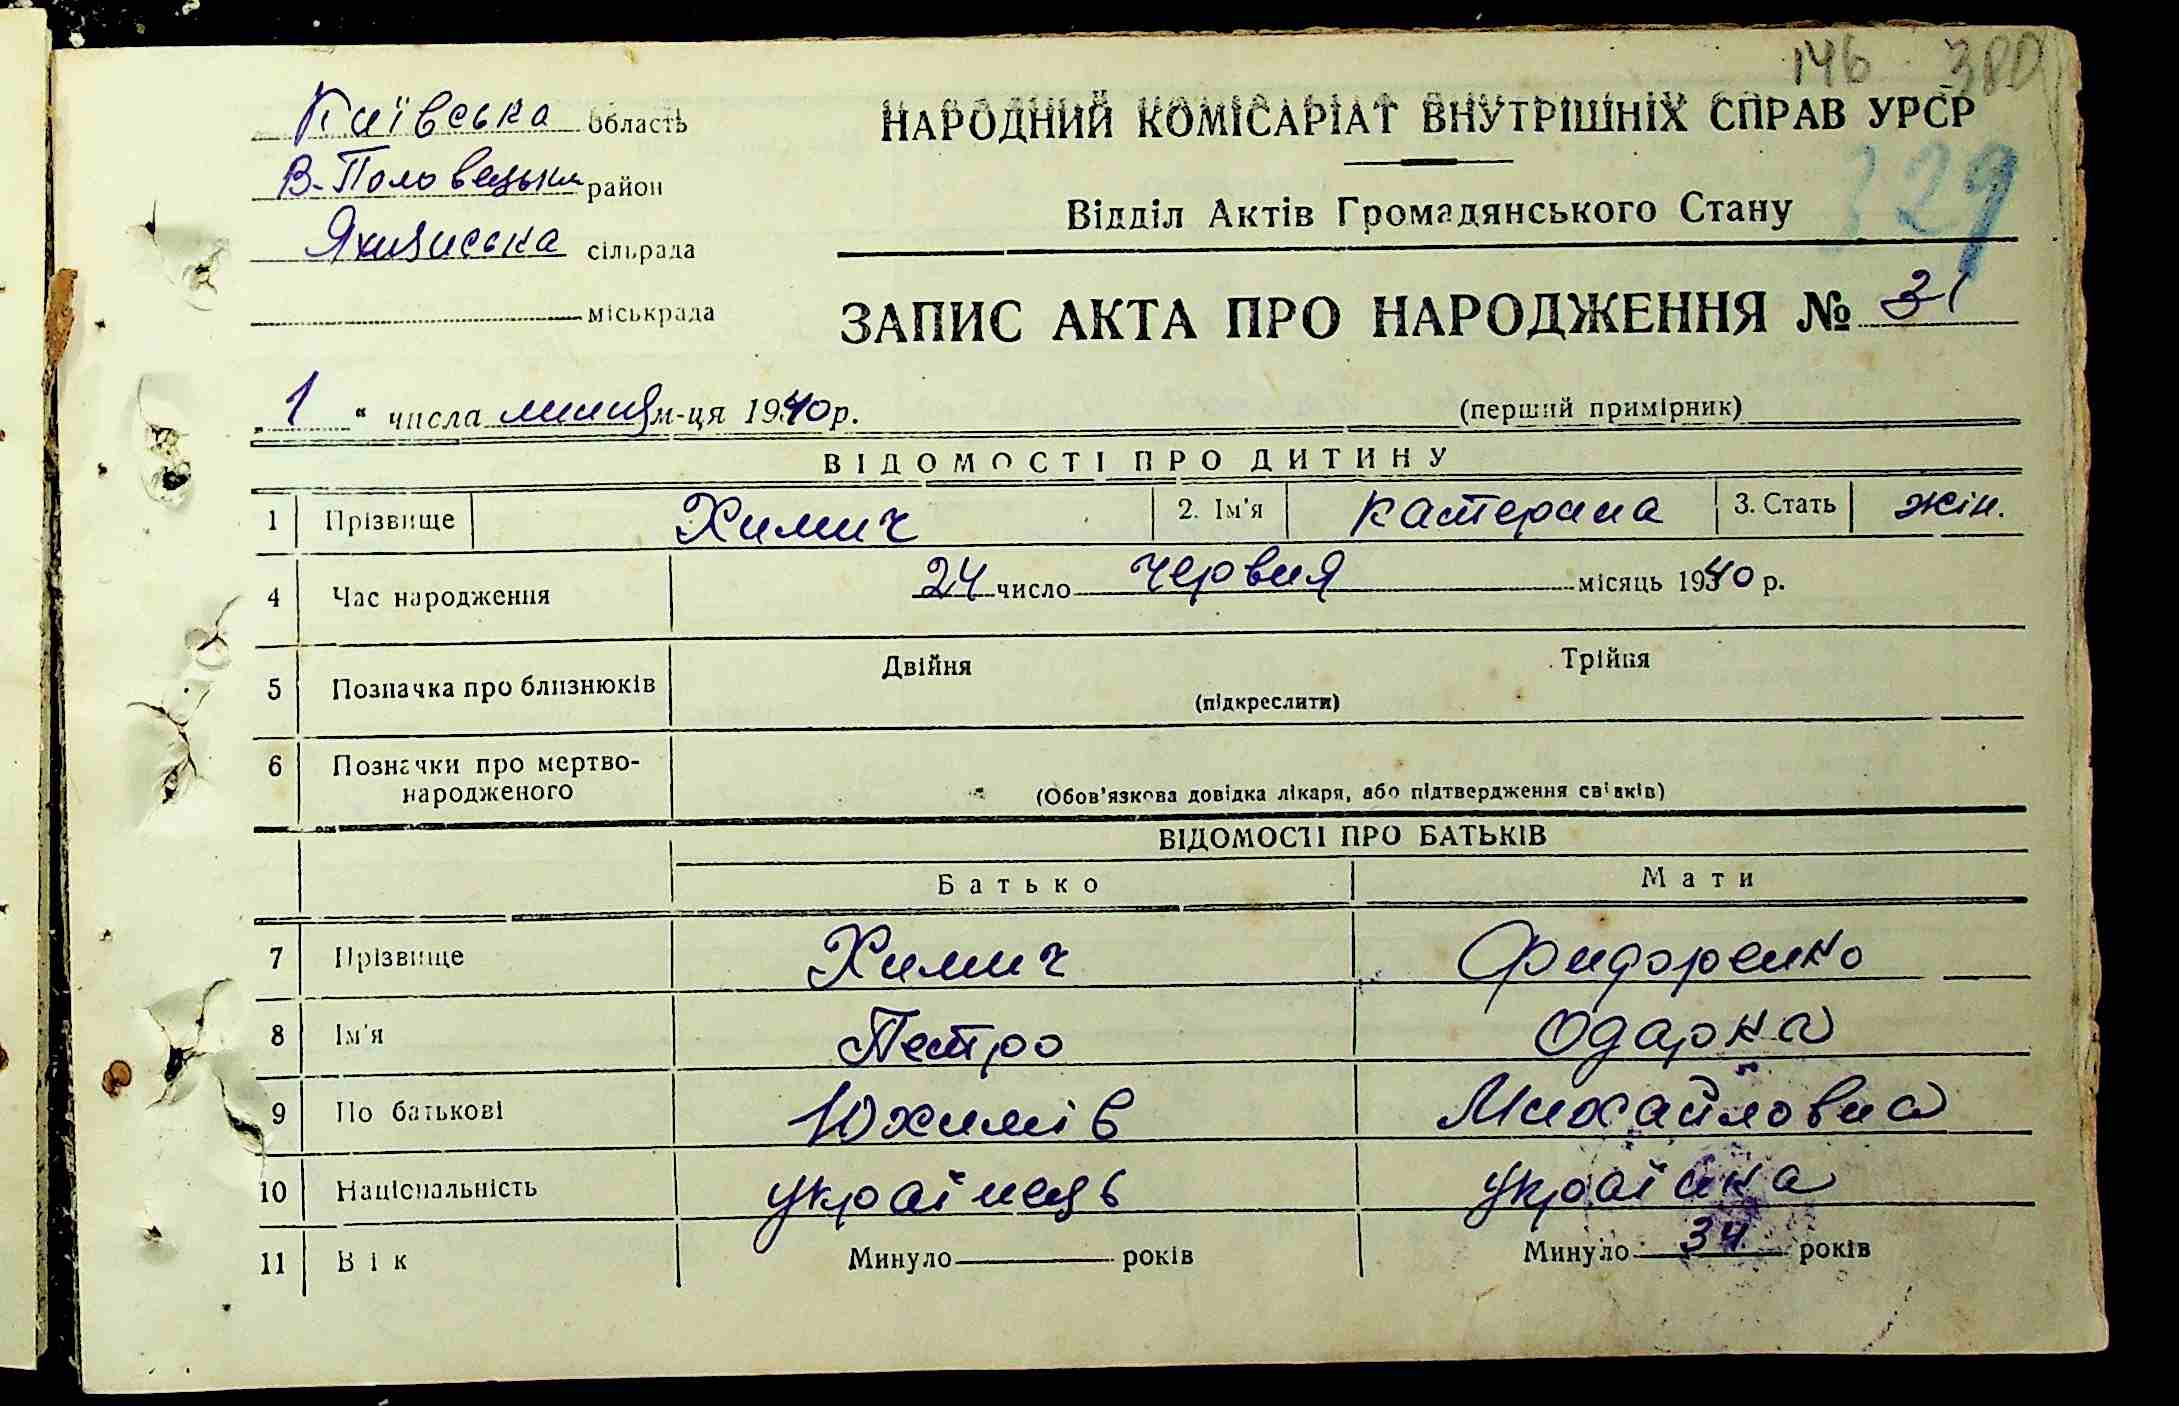 146 380
Київська область
НАРОДНИЙ КОМІСАРІАТ ВНУТРІШНІХ СПРАВ УРСР
В-Половецьки район
329
Яхнянська сільрада
Відділ Актів Громадянського Стану
міськрада
ЗАПИС АКТА ПРО НАРОДЖЕННЯ № 31
„1“ числа липня м-ця 1940 р.
(перший примірник)
ВІДОМОСТІ ПРО ДИТИНУ
1 Прізвище Химич 2. Ім'я Катерина 3. Стать жін.
4 Час народження 24 число червня місяць 1940 р.
5 Позначка про близнюків Двійня Трійня
(підкреслити)
6 Позначки про мертво-
народженого
(Обов'язкова довідка лікаря, або підтвердження свідків)
ВІДОМОСТІ ПРО БАТЬКІВ
Батько Мати
7 Прізвище Химич Фидоренко
8 Ім'я Петро Одарка
9 По батькові Юхимів Михайловна
10 Національність українець українка
11 Вік Минуло років Минуло 34 років